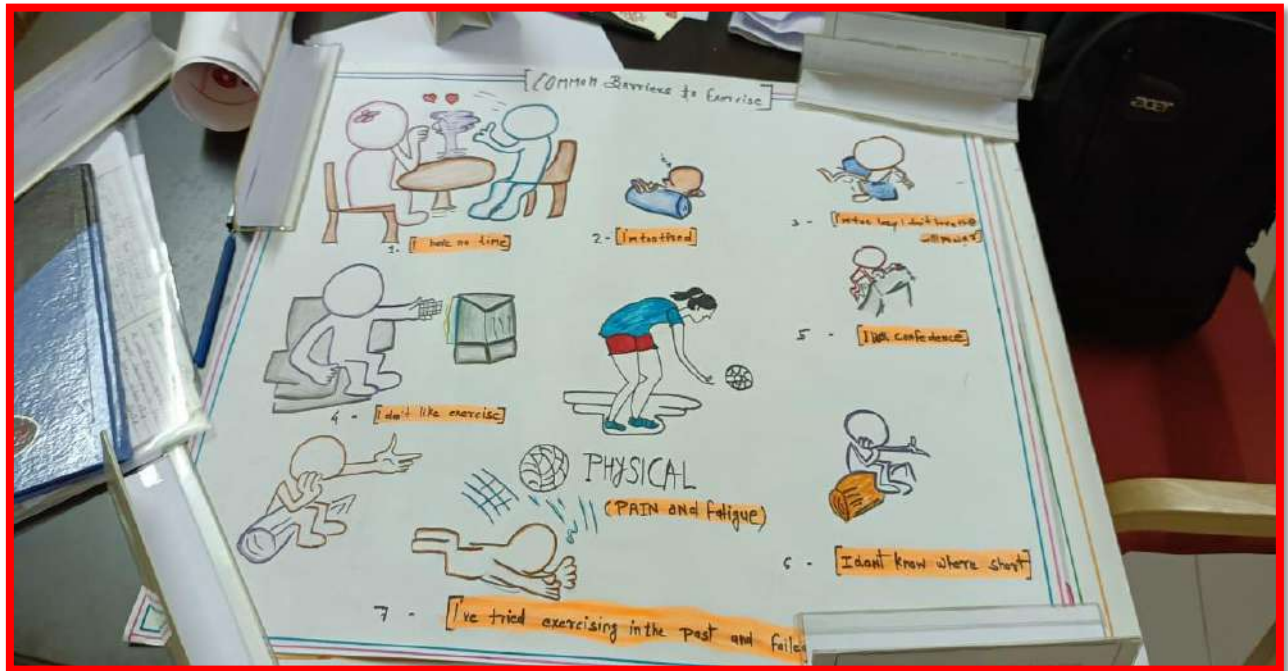 [COMMON Barriers to Exercise]
1- [I have no time]
2- [I'm too tired]
3 - [I'm too lazy I don't have
will power]
4 - [I don't like exercise]
5 - [I confedence]
PHYSICAL
(PAIN and Fatigue)
6 - [I dont know where short]
7 - [I've tried exercising in the past and faile
acer